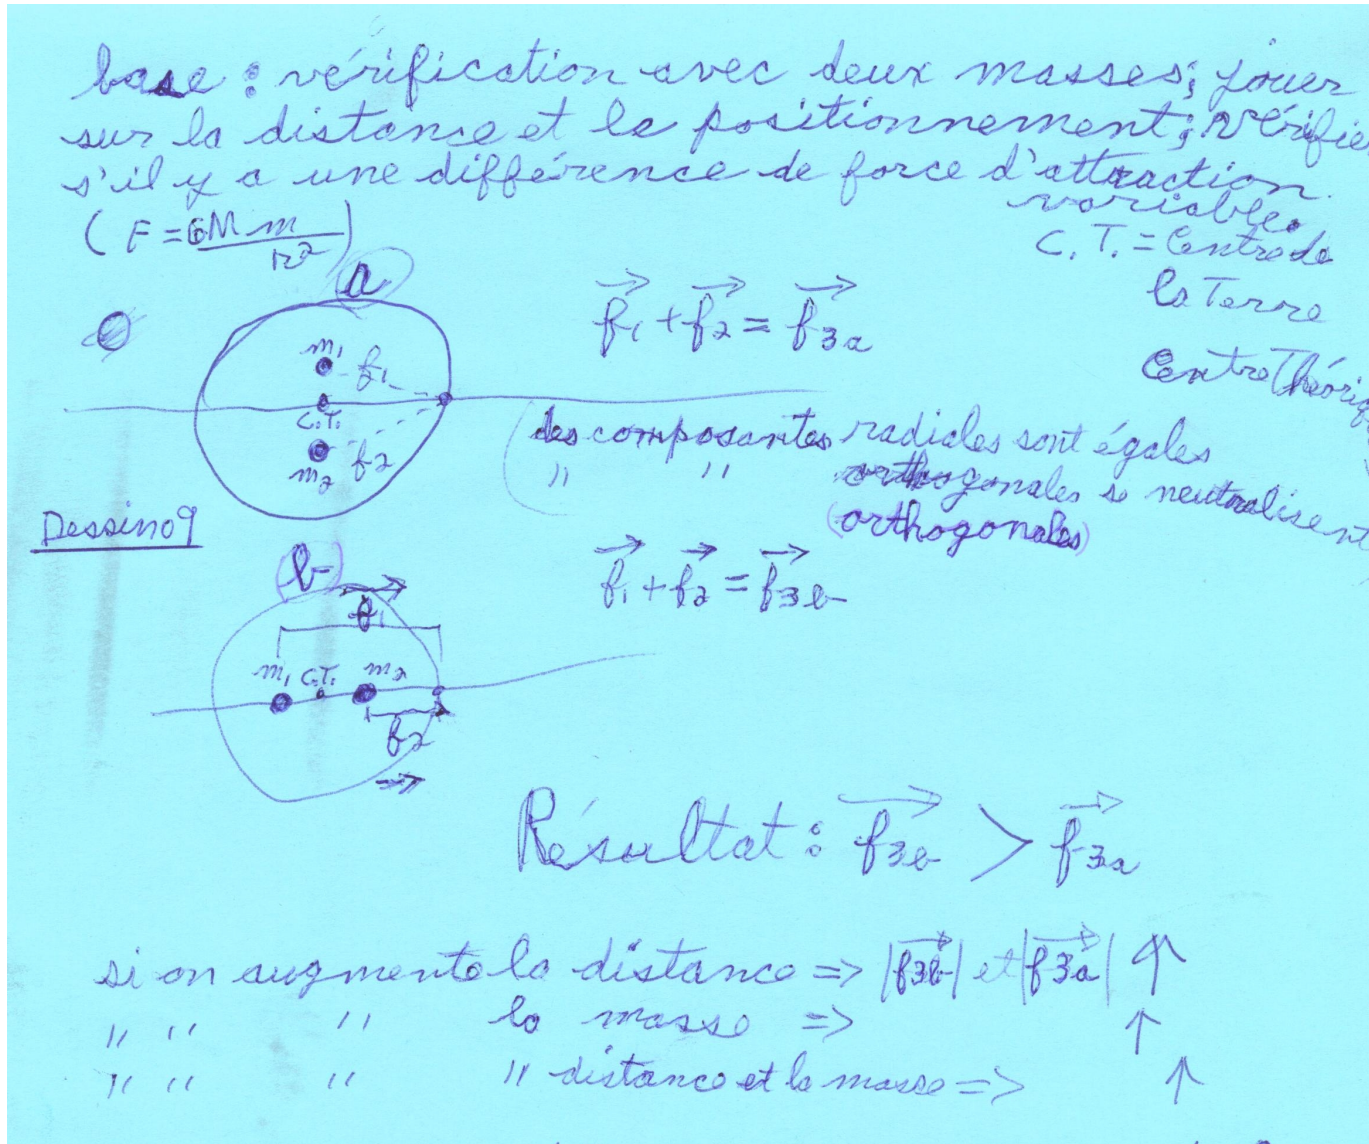 base : vérification avec deux masses; jouer
sur la distance et le positionnement; vérifie
s'il y a une différence de force d'attraction
variable.
(F = GMm / r²)
C.T. = Centre de
la Terre
Centre Théoriq
a
f₁ + f₂ = f₃a
m₁
f₁
C.T.
m₂
f₂
les composantes radiales sont égales
" " orthogonales se neutralisent
(orthogonales)
Dessin 9
b
f₁ + f₂ = f₃b
f₁
m₁ C.T. m₂
f₂
Résultat : f₃b > f₃a
si on augmente la distance => |f₃b| et |f₃a| ↑
" " " la masse => ↑
" " " " distance et la masse => ↑